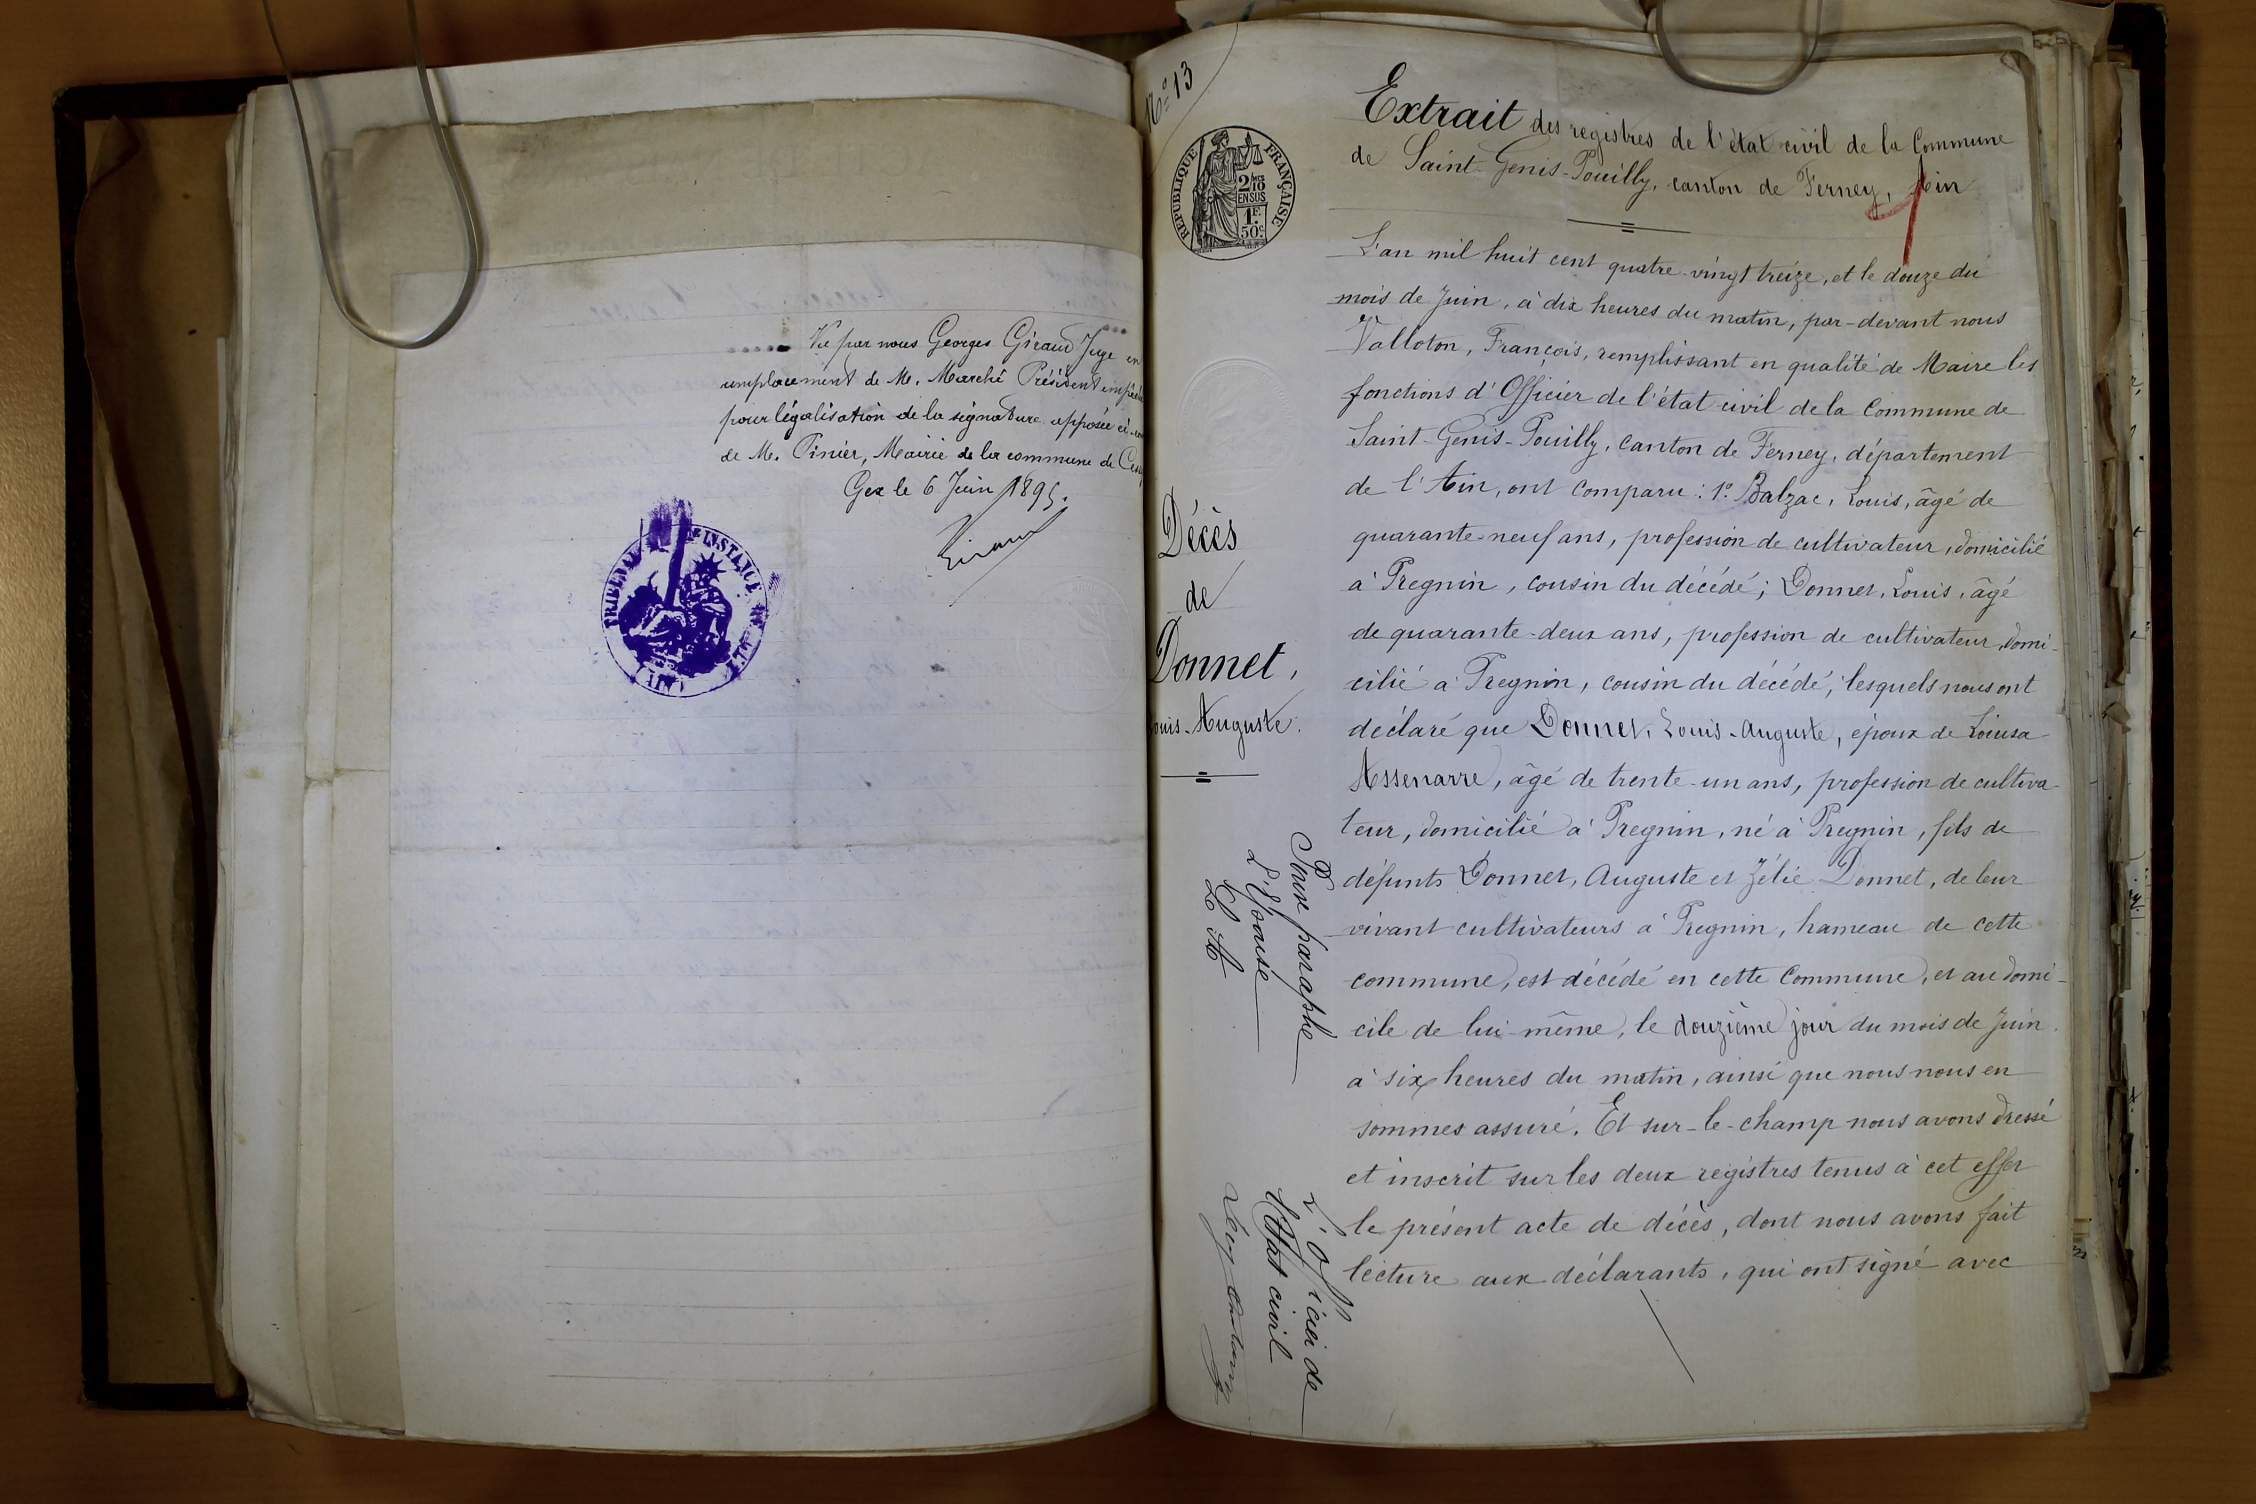 Vu par nous Georges Giraud Juge en
remplacement de M. Marché Président empêché
pour légalisation de la signature apposée ci-
de M. Pinier, Mairie de la commune de
Gex le 6 Juin 1895.
Giraud
TRIBUNAL INSTANCE
(AIN)
No 13
RÉPUBLIQUE FRANÇAISE
2/10
EN SUS
1F.
50c.
Décès
de
Donnet,
Louis-Auguste.
Pour paraphe
L'Épouse
L A
L'Officier de
l'État civil
Extrait des registres de l'état civil de la Commune
de Saint-Genis-Pouilly, canton de Ferney, Ain
L'an mil huit cent quatre-vingt treize, et le douze du
mois de Juin, à dix heures du matin, par-devant nous
Valloton, François, remplissant en qualité de Maire les
fonctions d'Officier de l'état-civil de la Commune de
Saint-Genis-Pouilly, canton de Ferney, département
de l'Ain, ont comparu : 1o Balzac, Louis, âgé de
quarante-neuf ans, profession de cultivateur, domicilié
à Pregnin, cousin du décédé; Donnet, Louis, âgé
de quarante-deux ans, profession de cultivateur, domi-
cilié à Pregnin, cousin du décédé; lesquels nous ont
déclaré que Donnet, Louis-Auguste, époux de Louisa
Assenarre, âgé de trente-un ans, profession de cultiva-
teur, domicilié à Pregnin, né à Pregnin, fils de
défunts Donnet, Auguste et Zélie Donnet, de leur
vivant cultivateurs à Pregnin, hameau de cette
commune, est décédé en cette Commune, et au domi-
cile de lui-même, le douzième jour du mois de Juin
à six heures du matin, ainsi que nous nous en
sommes assuré. Et sur-le-champ nous avons dressé
et inscrit sur les deux registres tenus à cet effet
le présent acte de décès, dont nous avons fait
lecture aux déclarants, qui ont signé avec